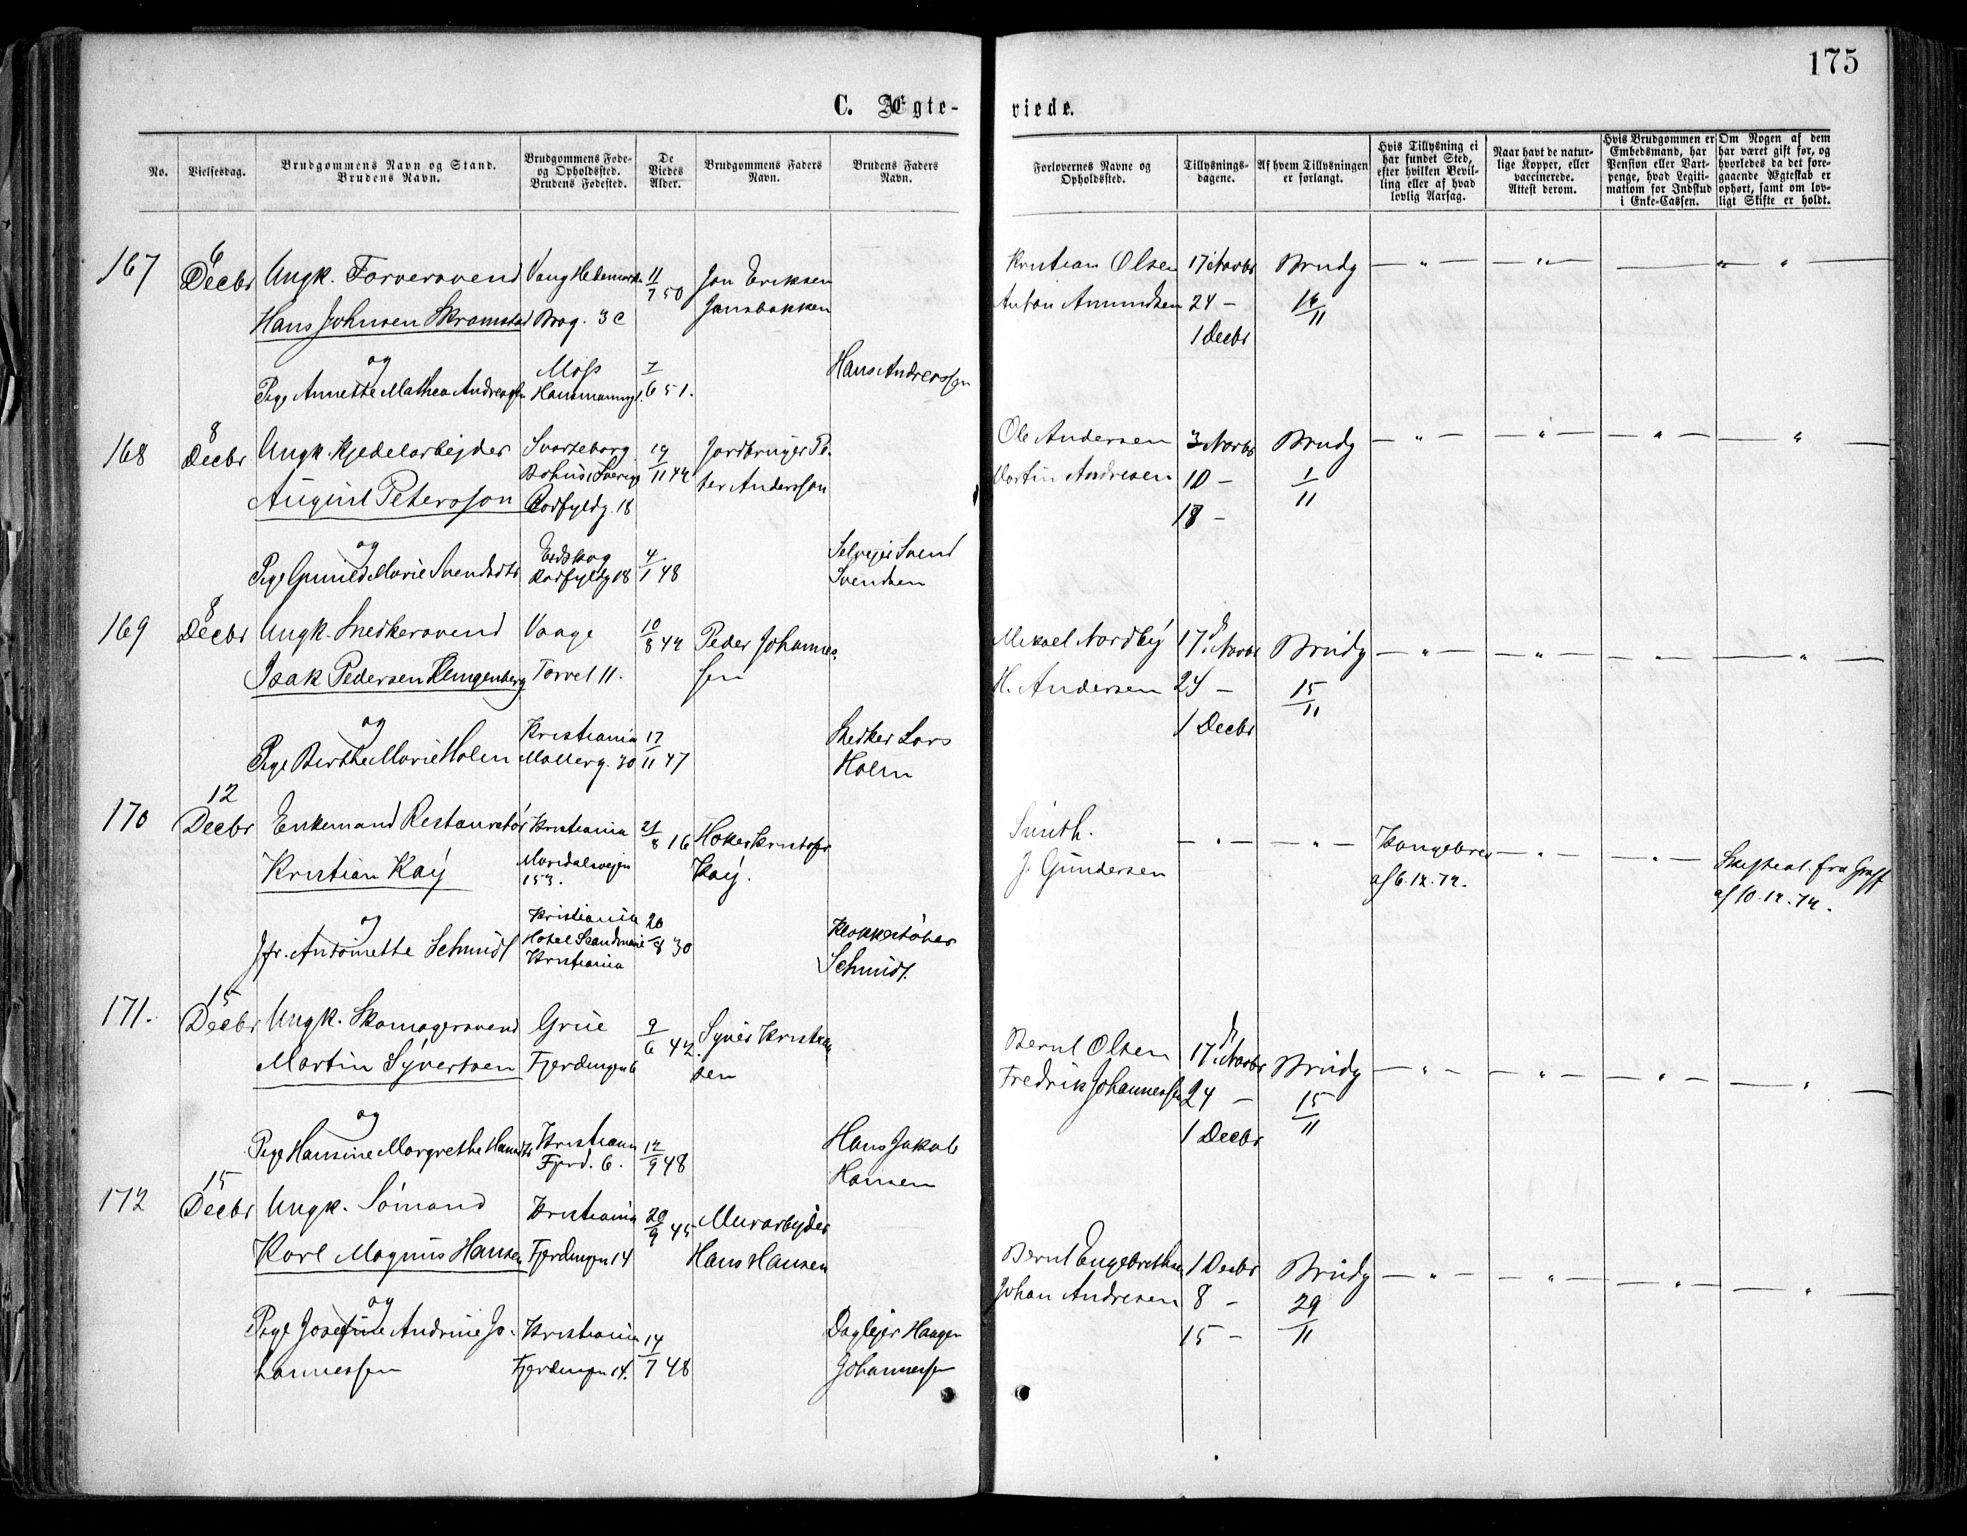 175
C. Ægte-
viede.
No.
Vielsesdag.
Brudgommens Navn og Stand.
Brudens Navn.
Brudgommens Føde-
og Opholdssted.
Brudens Fødested.
De
Viedes
Alder.
Brudgommens Faders
Navn.
Brudens Faders
Navn.
Forlovernes Navne og
Opholdssted.
Tillysnings-
dagene.
Af hvem Tillysningen
er forlangt.
Hvis Tillysning ei
har fundet Sted,
efter hvilken Bevil-
ling eller af hvad
lovlig Aarsag.
Naar havt de natur-
lige Kopper, eller
vaccinerede.
Attest derom.
Hvis Brudgommen er
Embedsmand, har
Pension eller Vart-
penge, hvad Legiti-
mation for Indskud
i Enke-Cassen.
Om Nogen af dem
har været gift før, og
hvorledes da det fore-
gaaende Ægteskab er
ophørt, samt om lov-
ligt Skifte er holdt.
167
6
Decbr
Ungk. Farversvend
Hans Johnsen Skramstad
Vang Hedemark
Brog. 3c
11/7 50
Jon Eriksen
Jonsbakken
Kristian Olsen
Anton Amundsen
17 Novbr
24 –
1 Decbr
Brudg
16/11
og
Pige Annette Mathea Andreassen
Moss
Hausmannsg.
7/6 51.
Hans Andreassen
168
8
Decbr
Ungk. Kjedelarbejder
August Petersson
Svarteborg
Bohus, Sverige
Rødfyldg. 18
19/11 44
Jordbruger Pe-
ter Andersson
Ole Andersen
Martin Andresen
3 Novbr
10 –
18 –
Brudg
1/11
og
Pige Gunild Marie Svendsdtr
Eidskog
Rødfyldg 18
4/1 48
Selvejer Svend
Svendsen
169
8
Decbr
Ungk. Snedkersvend
Isak Pedersen Klingenberg
Vaage
Torvet 11.
10/8 44
Peder Johannes-
sen
Mikael Nordby
H. Andersen
17 Novbr
24 –
1 Decbr
Brudg
15/11
og
Pige Berthe Marie Holm
Kristiania
Møllerg. 30
17/11 47
Snedker Lars
Holm
170
12
Decbr
Enkemand Restauratør
Kristian Kaÿ
Kristiania
Maridalsvejen
153.
21/8 16
Høker Kristofer
Kaÿ.
Smith.
J. Gundersen
Kongebrev
af 6.12.72.
Skifteat. fra
af 10.12.72.
og
Jfr. Antoinette Schmidt
Kristiania
Hotel Scandinavie
Kristiania
20/8 30
Klokkestøber
Schmidt.
171.
15
Decbr
Ungk. Skomagersvend
Martin Syvertsen
Grue
Fjerdingen 6
9/6 42
Syver Kristian
sen
Bernt Olsen
Fredrik Johannessen
17 Novbr
24 –
1 Decbr
Brudg
15/11
og
Pige Hansine Margrethe Hansdtr
Kristiania
Fjerd. 6.
12/9 48
Hans Jakob
Hansen
172
15
Decbr
Ungk. Sømand
Karl Magnus Hansen
Kristiania
Fjerdingen 14
20/9 45
Murarbejder
Hans Hansen
Bernt Engebrethsen
Johan Andresen
1 Decbr
8 –
15 –
Brudg
29/11
og
Pige Josefine Andrine Jo-
hannessen
Kristiania
Fjerdingen 14.
14/7 48
Daglejer Haagen
Johannessen